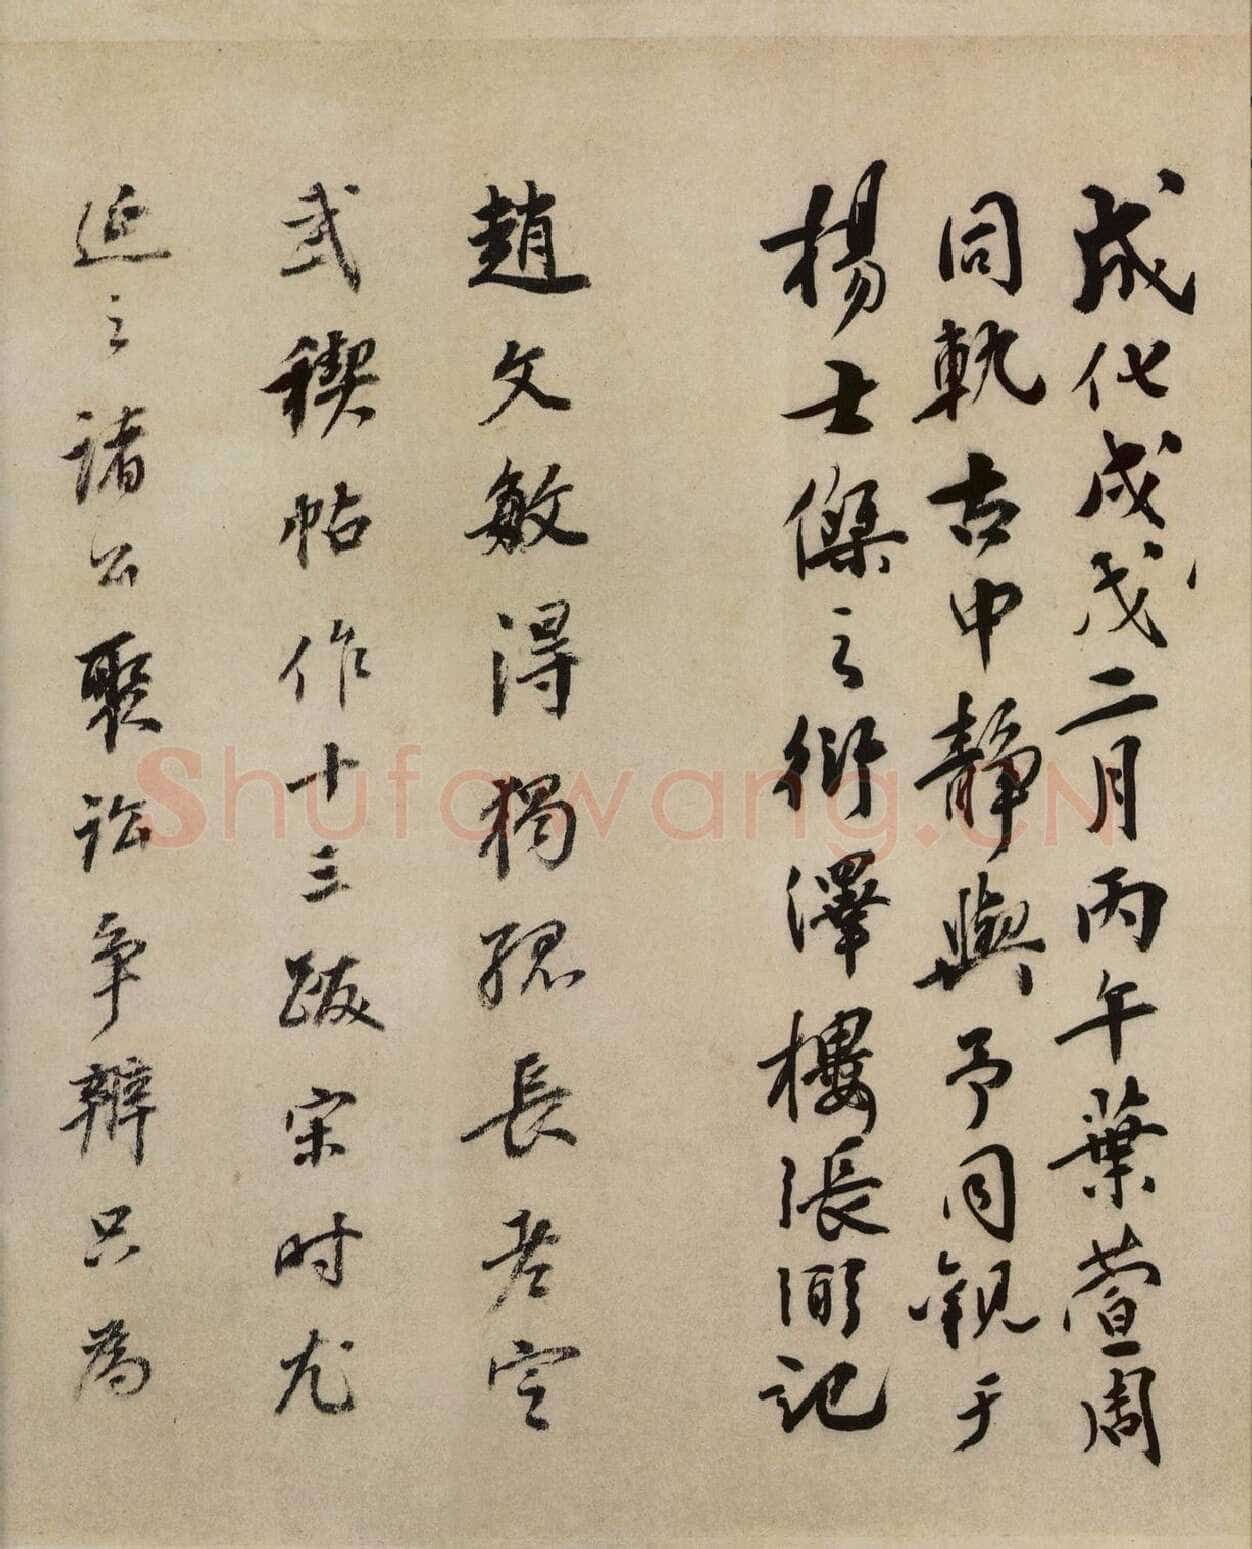 成化戊戌二月丙午葉萱周
同軌古中靜與予同觀于
楊士傑之衍澤樓張弼記
趙文敏得獨孤長老定
武禊帖作十三跋宋时尤
延之諸公聚訟争辨只為
Shufawang.CN